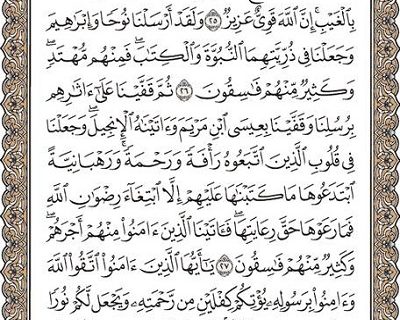 بِٱلْغَيْبِ إِنَّ ٱللَّهَ قَوِىٌّ عَزِيزٌ ٢٥ وَلَقَدْ أَرْسَلْنَا نُوحًا وَإِبْرَٰهِيمَ
وَجَعَلْنَا فِى ذُرِّيَّتِهِمَا ٱلنُّبُوَّةَ وَٱلْكِتَٰبَ ۖ فَمِنْهُم مُّهْتَدٍ ۖ
وَكَثِيرٌ مِّنْهُمْ فَٰسِقُونَ ٢٦ ثُمَّ قَفَّيْنَا عَلَىٰٓ ءَاثَٰرِهِم
بِرُسُلِنَا وَقَفَّيْنَا بِعِيسَى ٱبْنِ مَرْيَمَ وَءَاتَيْنَٰهُ ٱلْإِنجِيلَ ۖ وَجَعَلْنَا
فِى قُلُوبِ ٱلَّذِينَ ٱتَّبَعُوهُ رَأْفَةً وَرَحْمَةً ۚ وَرَهْبَانِيَّةً
ٱبْتَدَعُوهَا مَا كَتَبْنَٰهَا عَلَيْهِمْ إِلَّا ٱبْتِغَآءَ رِضْوَٰنِ ٱللَّهِ
فَمَا رَعَوْهَا حَقَّ رِعَايَتِهَا ۖ فَـَٔاتَيْنَا ٱلَّذِينَ ءَامَنُوا۟ مِنْهُمْ أَجْرَهُمْ ۖ
وَكَثِيرٌ مِّنْهُمْ فَٰسِقُونَ ٢٧ يَٰٓأَيُّهَا ٱلَّذِينَ ءَامَنُوا۟ ٱتَّقُوا۟ ٱللَّهَ
وَءَامِنُوا۟ بِرَسُولِهِۦ يُؤْتِكُمْ كِفْلَيْنِ مِن رَّحْمَتِهِۦ وَيَجْعَل لَّكُمْ نُورًا